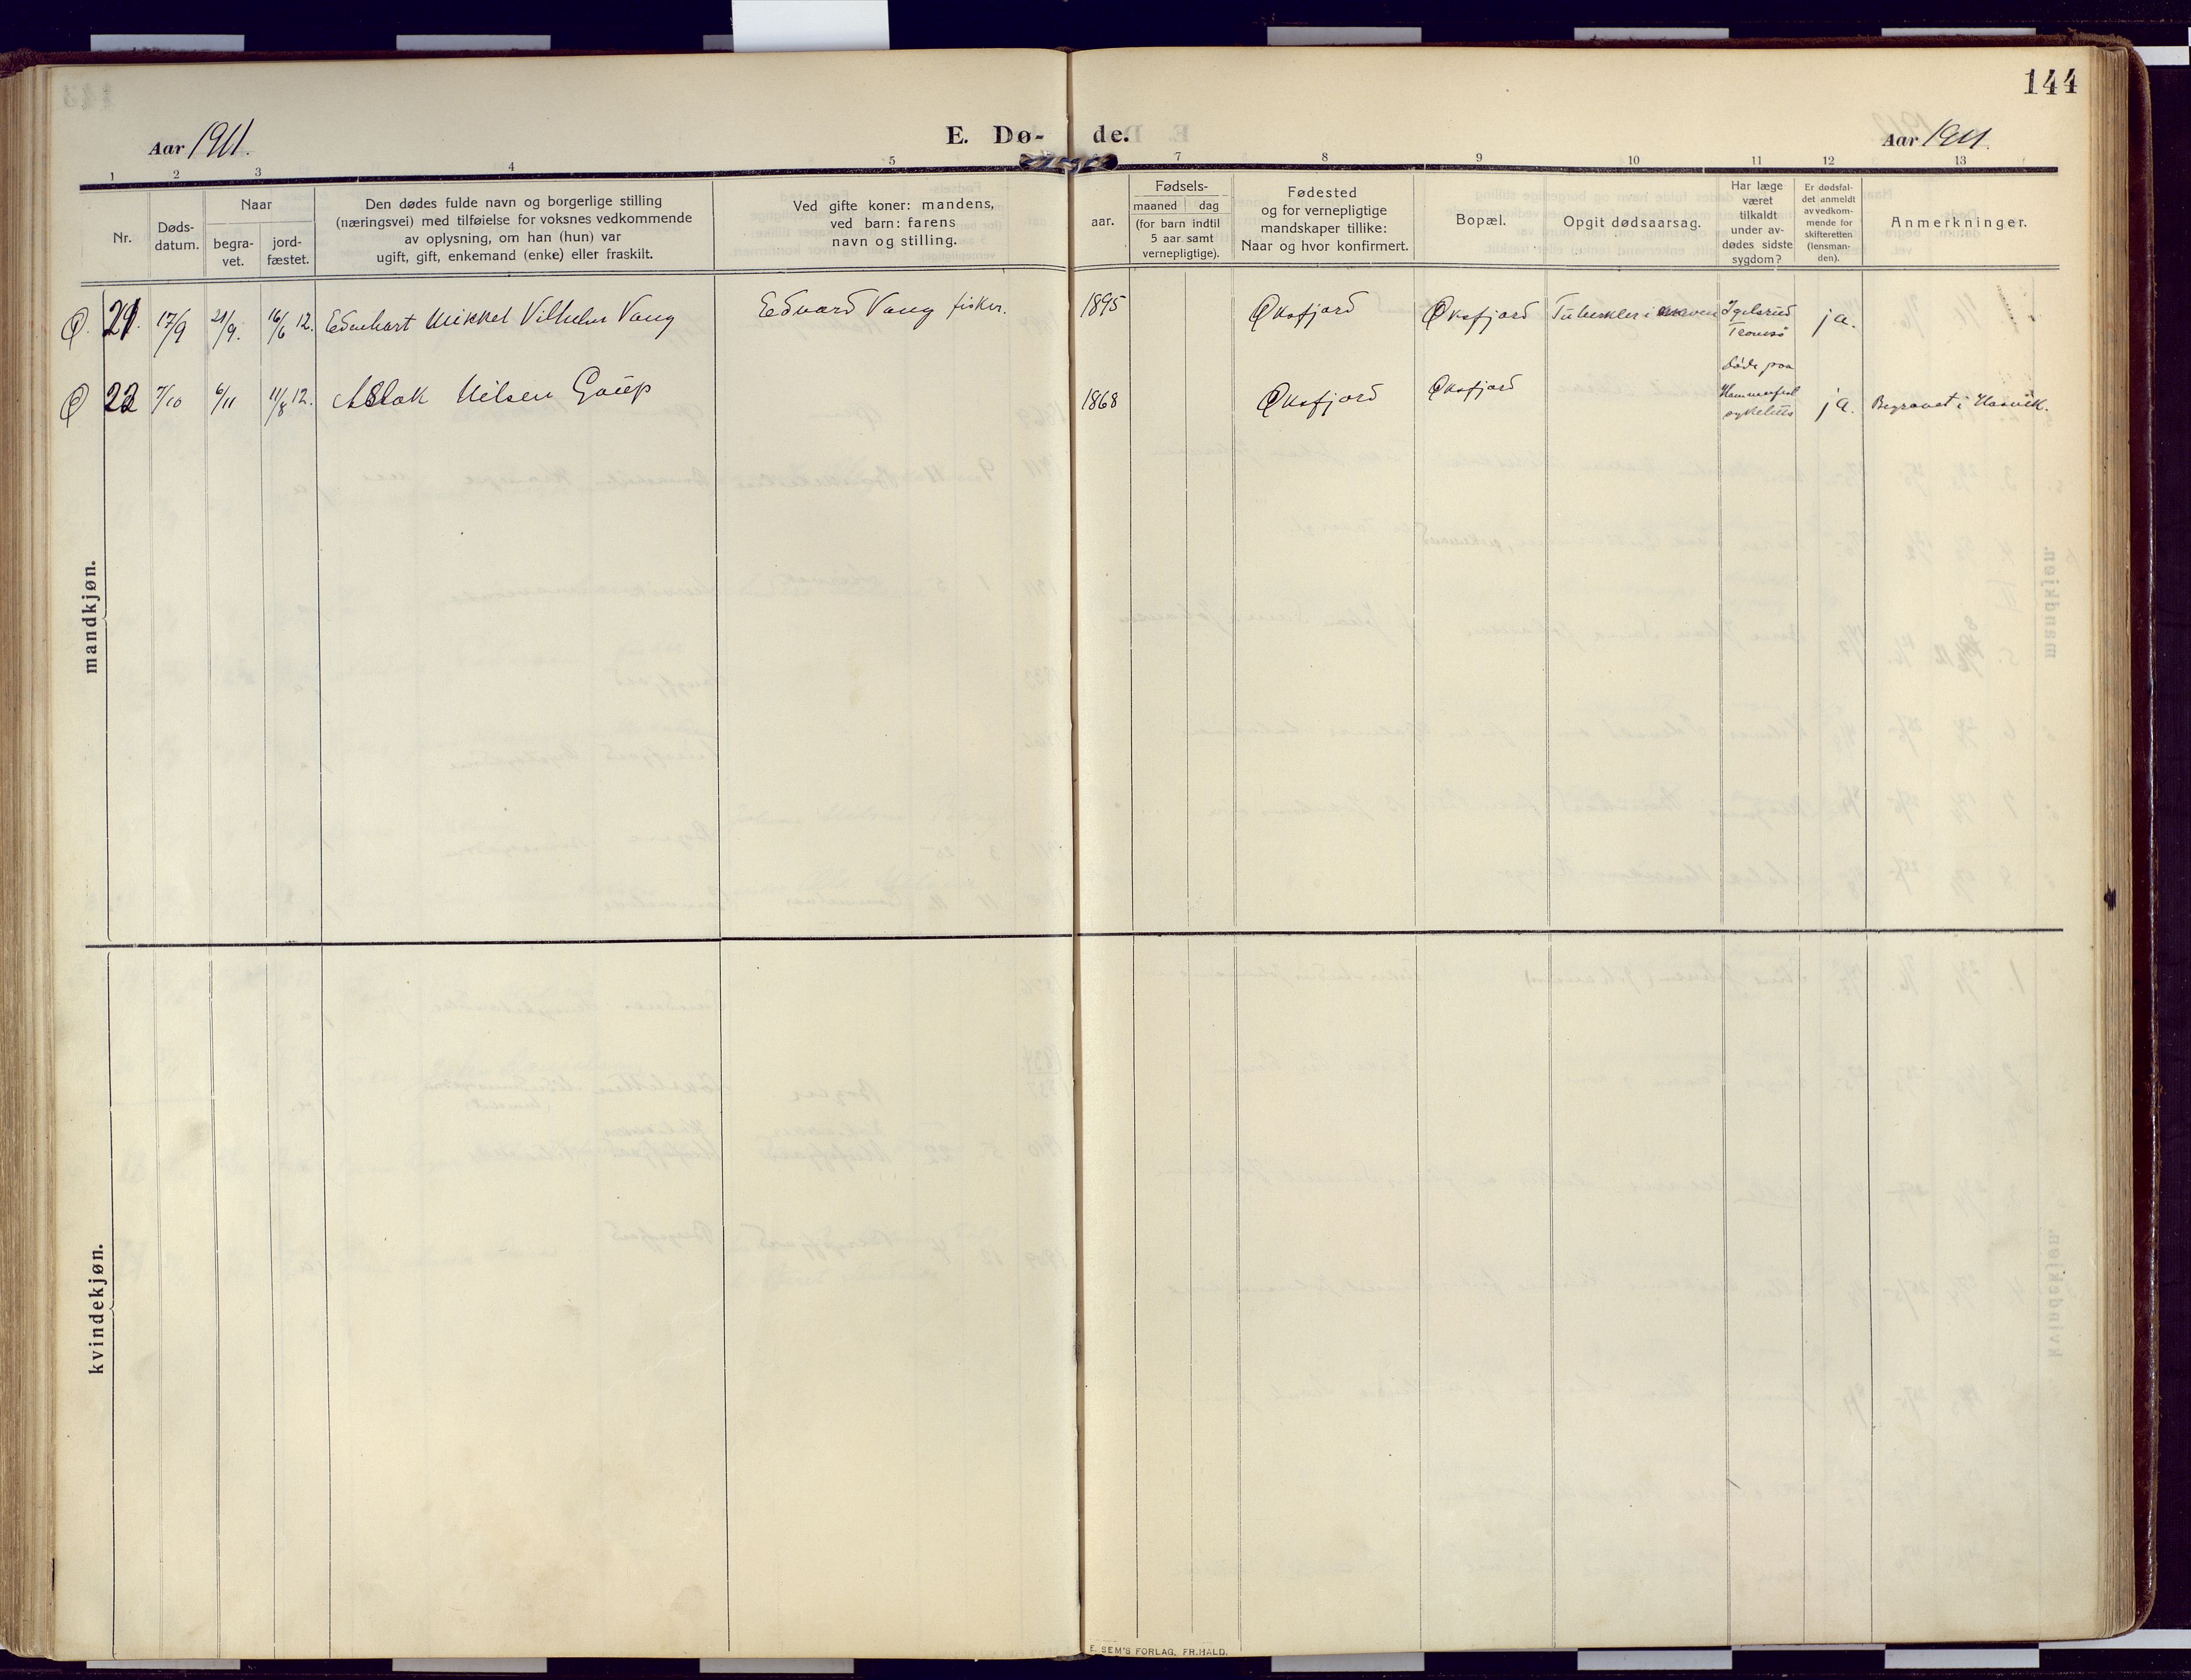 144
Aar 1911.
E. Dø-de.
Aar 1911.
1 2 3 4 5 7 8 9 10 11 12 13
Nr.
Døds-
datum.
Naar
begra-
vet.
jord-
fæstet.
Den dødes fulde navn og borgerlige stilling
(næringsvei) med tilføielse for voksnes vedkommende
av oplysning, om han (hun) var
ugift, gift, enkemand (enke) eller fraskilt.
Ved gifte koner: mandens,
ved barn: farens
navn og stilling.
Fødsels-
aar.
maaned dag
(for barn indtil
5 aar samt
vernepligtige).
Fødested
og for vernepligtige
mandskaper tillike:
Naar og hvor konfirmert.
Bopæl.
Opgit dødsaarsag.
Har læge
været
tilkaldt
under av-
dødes sidste
sygdom?
Er dødsfal-
det anmeldt
av vedkom-
mende for
skifteretten
(lensman-
den).
Anmerkninger.
mandkjøn.
Ø. 21. 17/9 21/9. 16/6 12. Edenhart Mikkel Vilhelm Vang Edvard Vang fisker. 1895 Øksfjord Øksfjord Tuberkler i Tromsø ja.
Ø 22 7/10 6/11 11/8 12. Aslak Nilsen Gaup 1868 Øksfjord Øksfjord døde paa
Hammerfest
sykehus ja. Begravet i Hasvik.
kvindekjøn.
E. SEM'S FORLAG, FR.HALD.